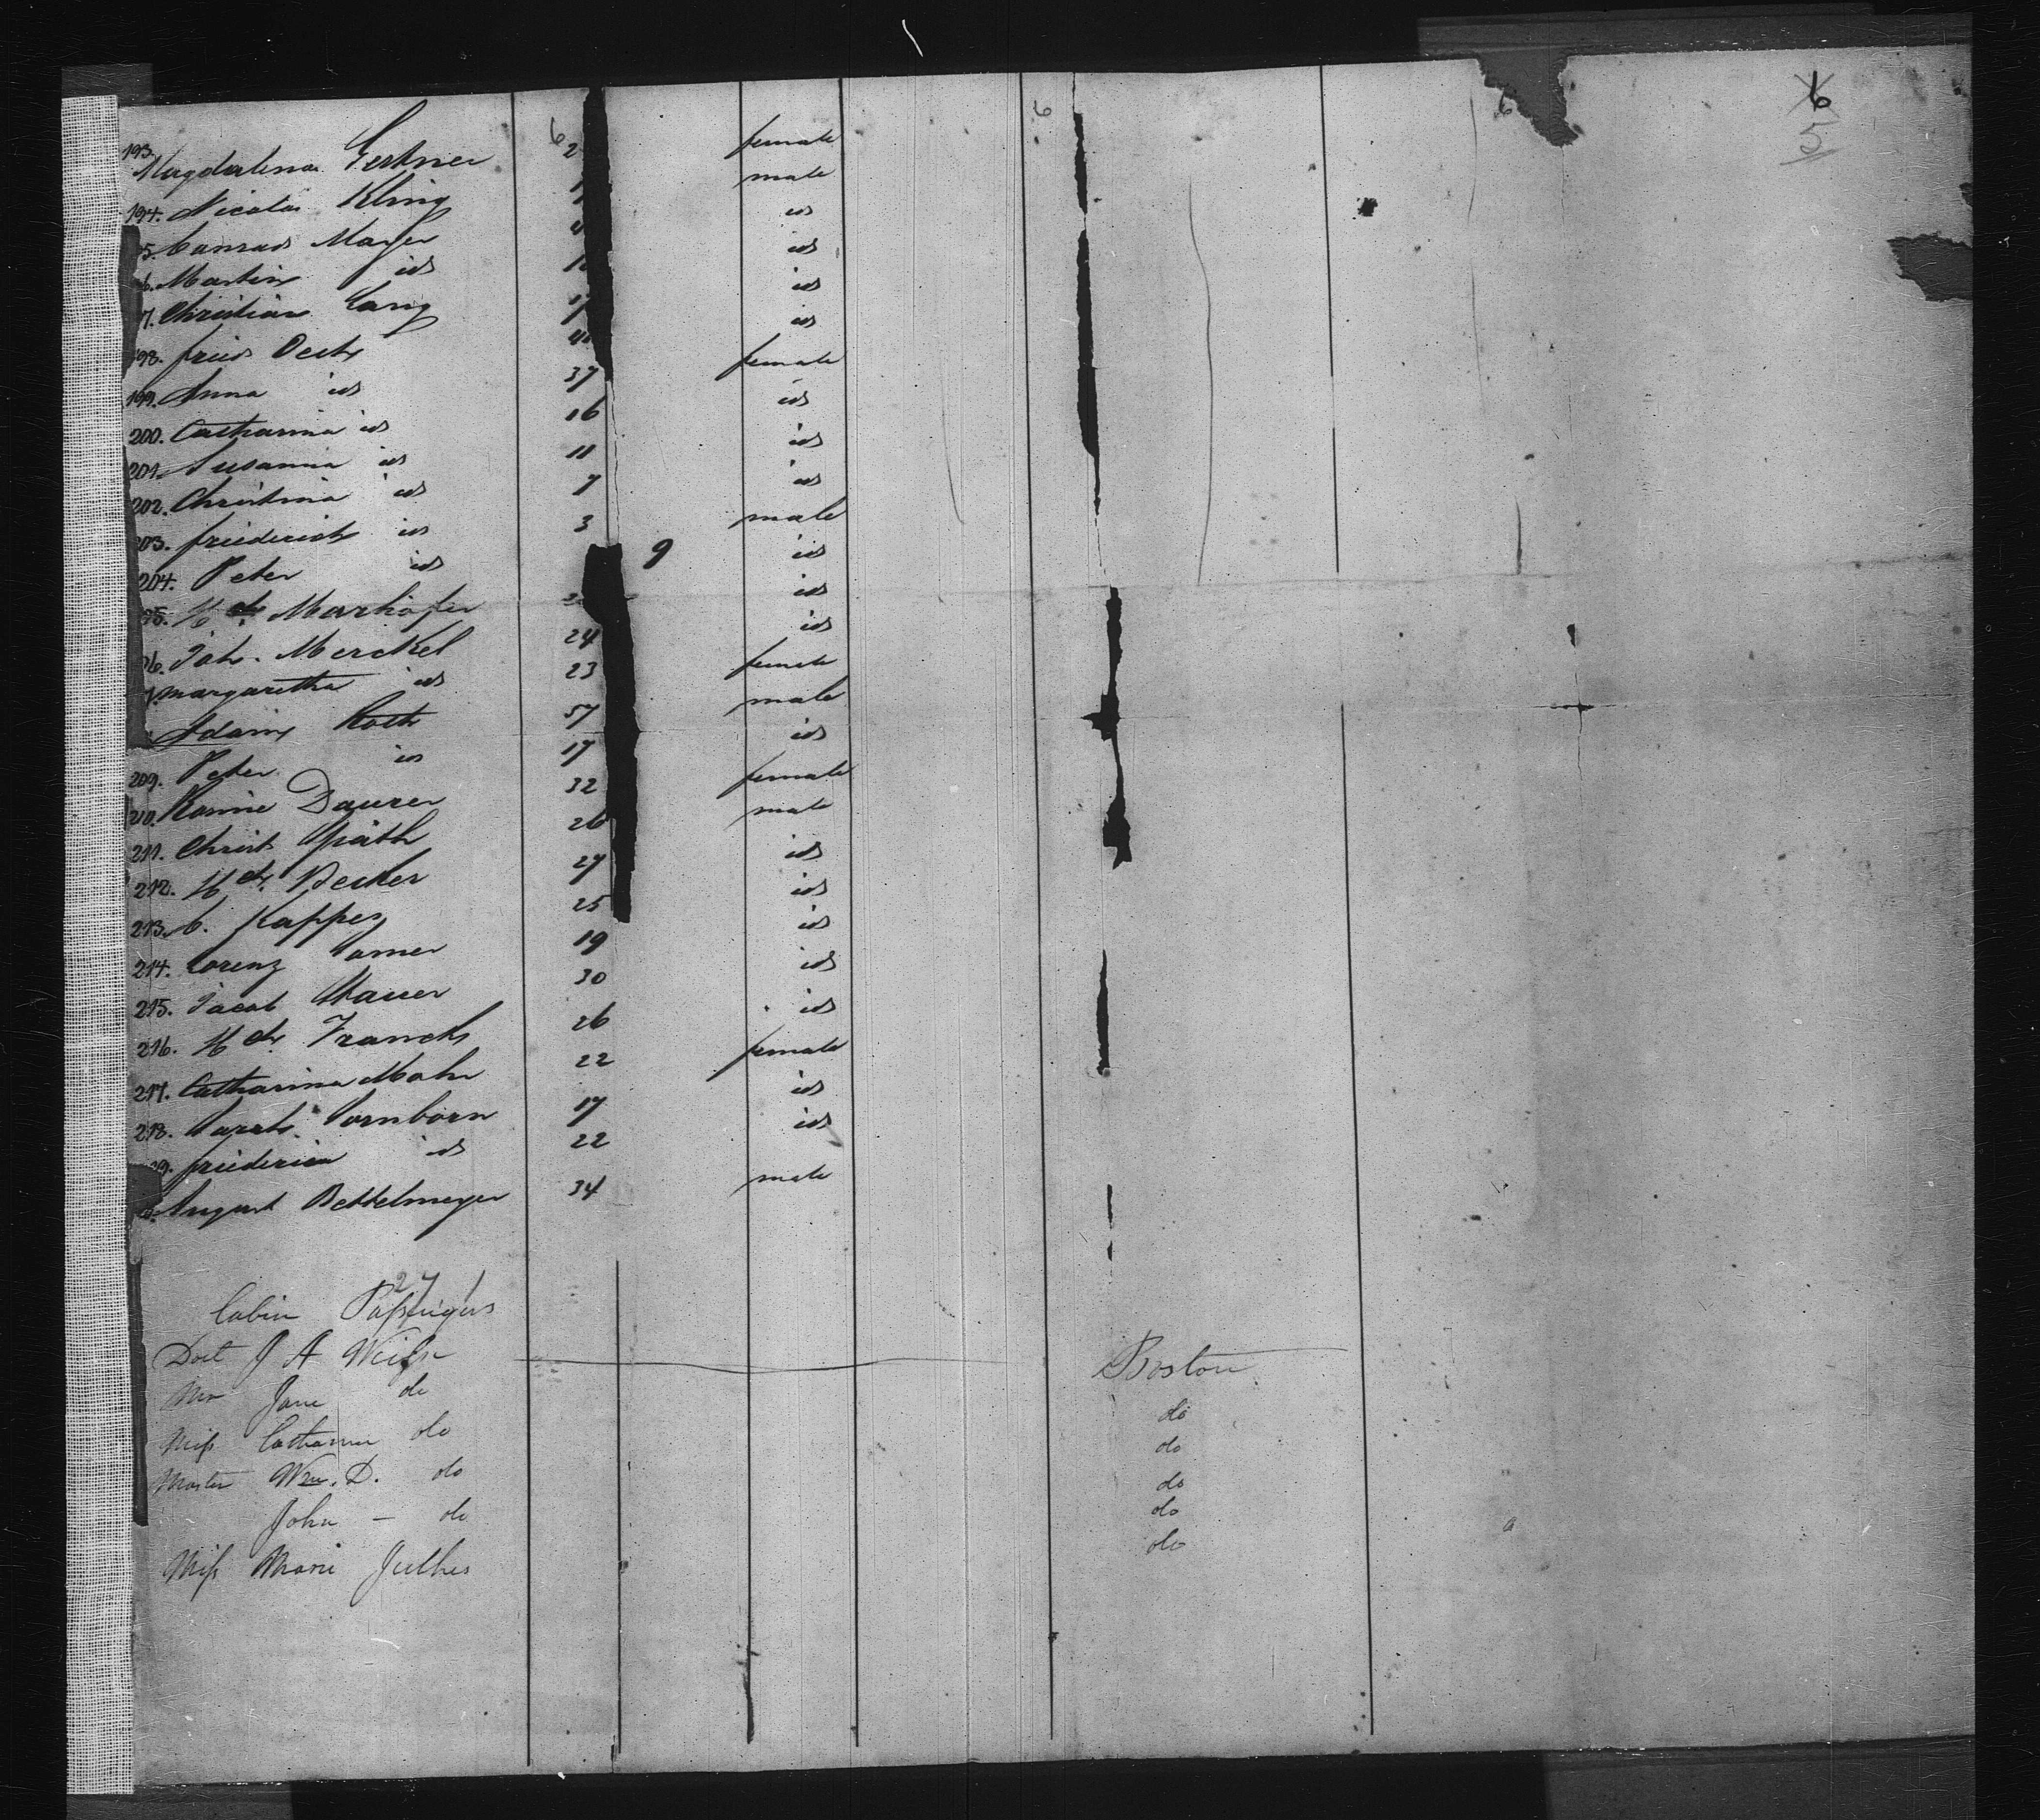 6 6 6 6
5
193. Magdalena Gertner 2 female
194. Nicolas Kling 1 male
5. Conrad Mayer 4 id
6. Martin id 1 id
7. Christian Lang 17 id
198. fried Pech 4 id
199. Anna id 37 female
200. Catharina id 16 id
201. Susanna id 11 id
202. Christina id 7 id
203. friederich id 3 male
204. Peter id 9 id
05. Hch. Marhöfer 2 id
06. Joh. Merckel 24 id
7. margaretha id 23 female
Adam Roth 57 male
209. Peter id 17 id
210. Hanne Daurer 32 female
211. Christ Späth 26 male
212. Hch. Becker 27 id
213. C. Kappes 25 id
214. Lorenz 19 id
215. Jacob 30 id
216. Hch. Franck 26 id
217. Catharina Mohr 22 female
218. Sarah Dornborn 17 id
19. friederica id 22 id
August Bettelmeyer 34 male
27
Cabin Passengers
Doct J A Weisse Boston
Mrs Jane do do
Miss Catharine do do
Master Wm. D. do do
John — do do
Miss Marie Julhes do